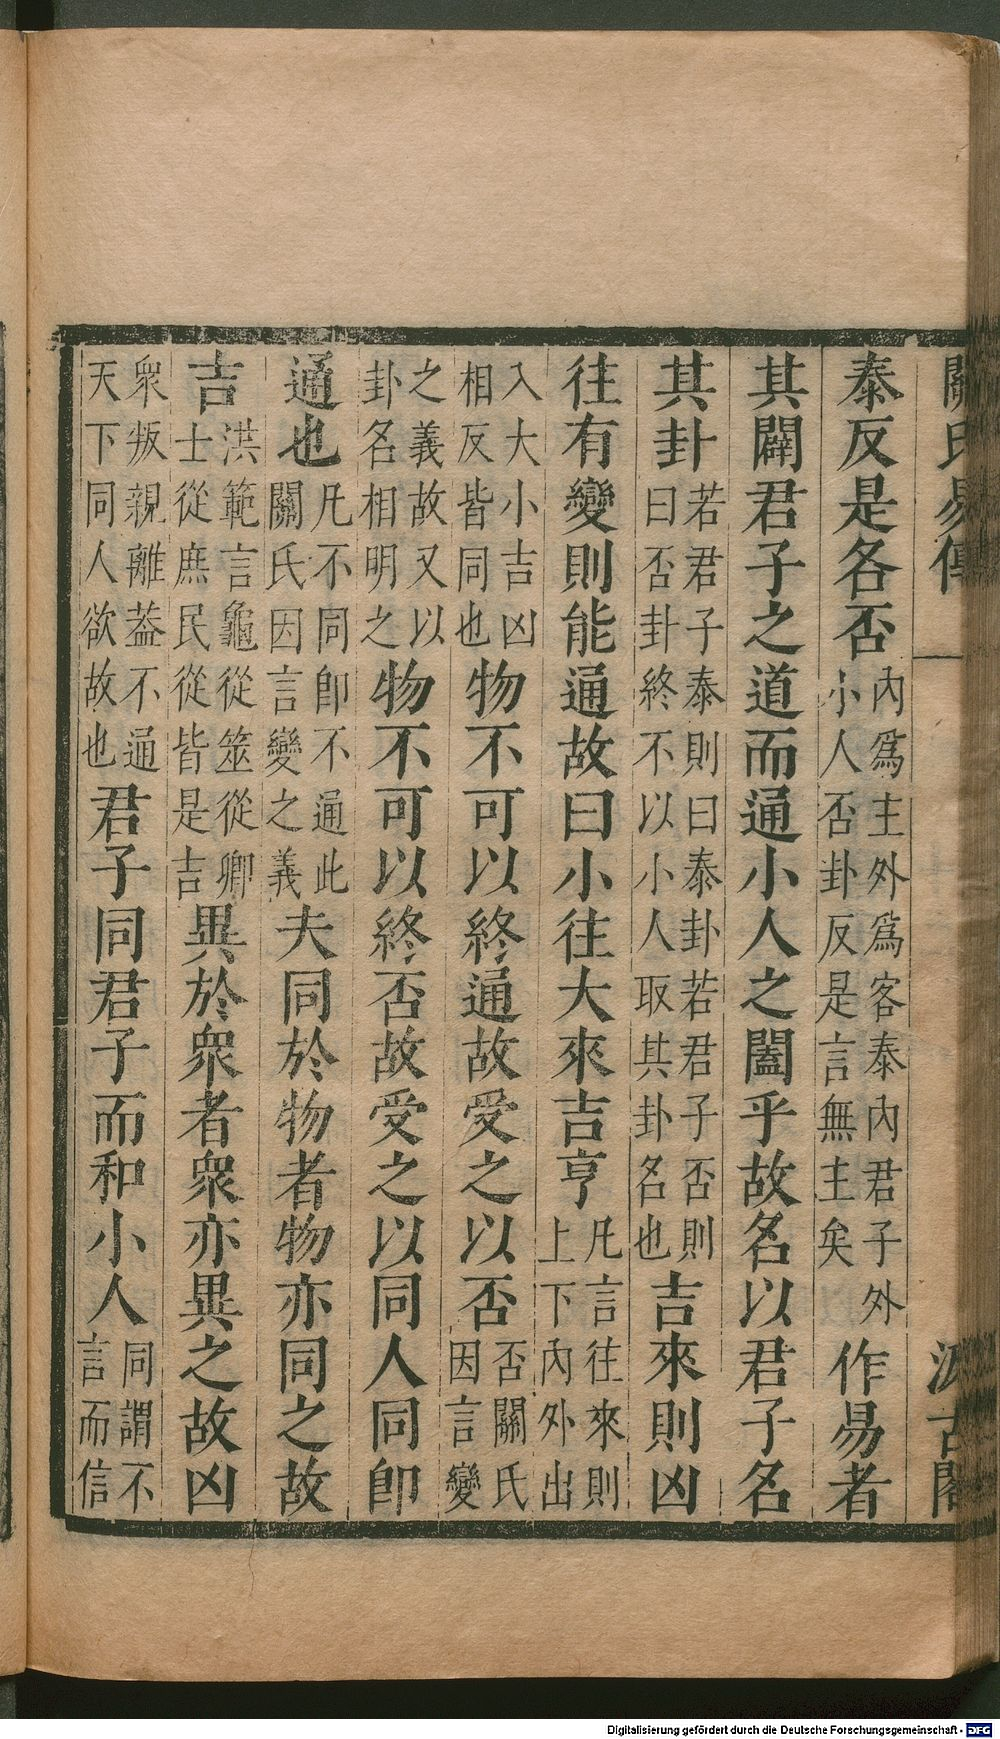 關氏易傳　汲古閣
泰反是各否內爲主外爲客泰內君子外小人否卦反是言無主矣作易者
其闢君子之道而通小人之闔乎故名以君子名
其卦若君子泰則曰泰卦若君子否則曰否卦終不以小人取其卦名也吉來則凶
往有變則能通故曰小往大來吉亨凡言往來則上下內外出
入大小吉凶相反皆同也物不可以終通故受之以否否關氏因言變
之義故又以卦名相明之物不可以終否故受之以同人同卽
通也凡不同卽不通此關氏因言變之義夫同於物者物亦同之故
吉洪範言龜從筮從卿士從庶民從皆是吉異於衆者衆亦異之故凶
衆叛親離葢不通天下同人欲故也君子同君子而和小人同謂不言而信
Digitalisierung gefördert durch die Deutsche Forschungsgemeinschaft - DFG